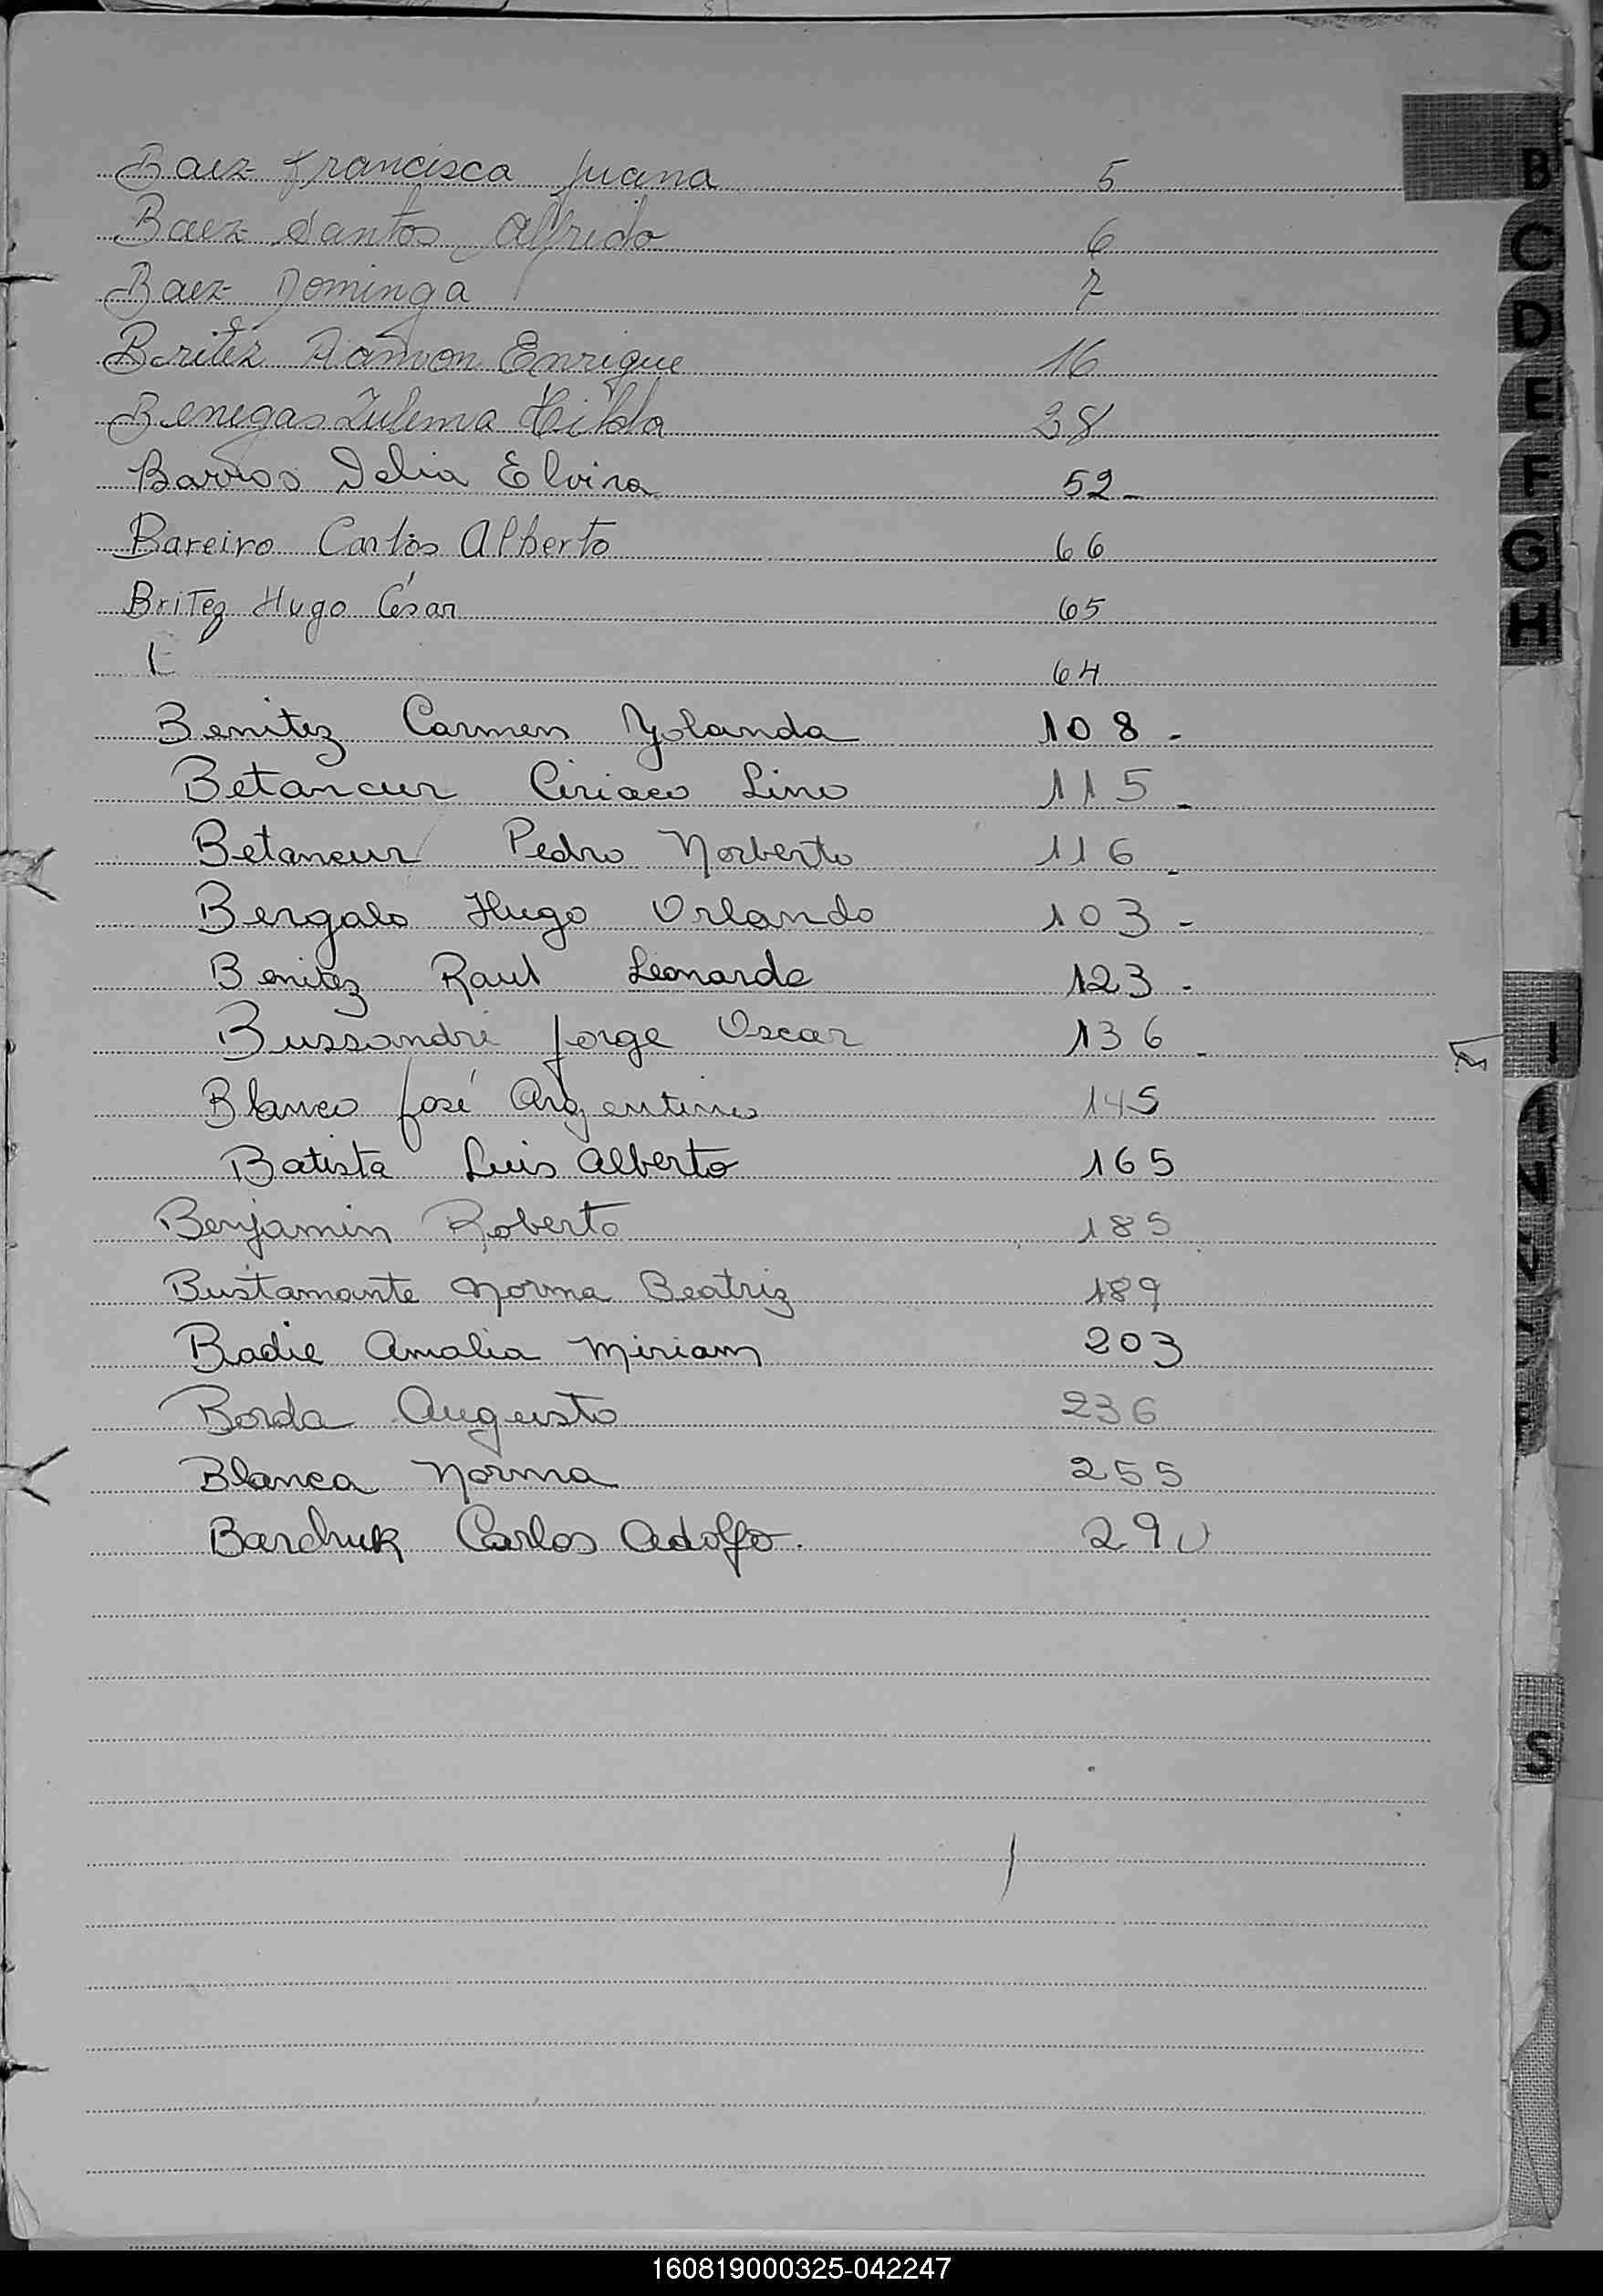 Baez Francisca Juana 5
Baez Santos Alfrido 6
Baez Dominga 7
Britez Ramon Enrique 16
Benegas Zulema Hilda 38
Barrios Delia Elvira 52-
Bareiro Carlos Alberto 66
Britez Hugo César 65
64
Benitez Carmen Yolanda 108-
Betancur Ciriaco Lino 115-
Betancur Pedro Norberto 116-
Bergalo Hugo Orlando 103-
Benitez Raul Leonardo 123-
Bussandri Jorge Oscar 136-
Blanco José Argentino 145
Batista Luis Alberto 165
Benjamin Roberto 185
Bustamante Norma Beatriz 189
Badie Amalia Miriam 203
Borda Augusto 236
Blanca Norma 255
Barchuk Carlos Adolfo. 290
B
C
D
E
F
G
H
I
S
160819000325-042247